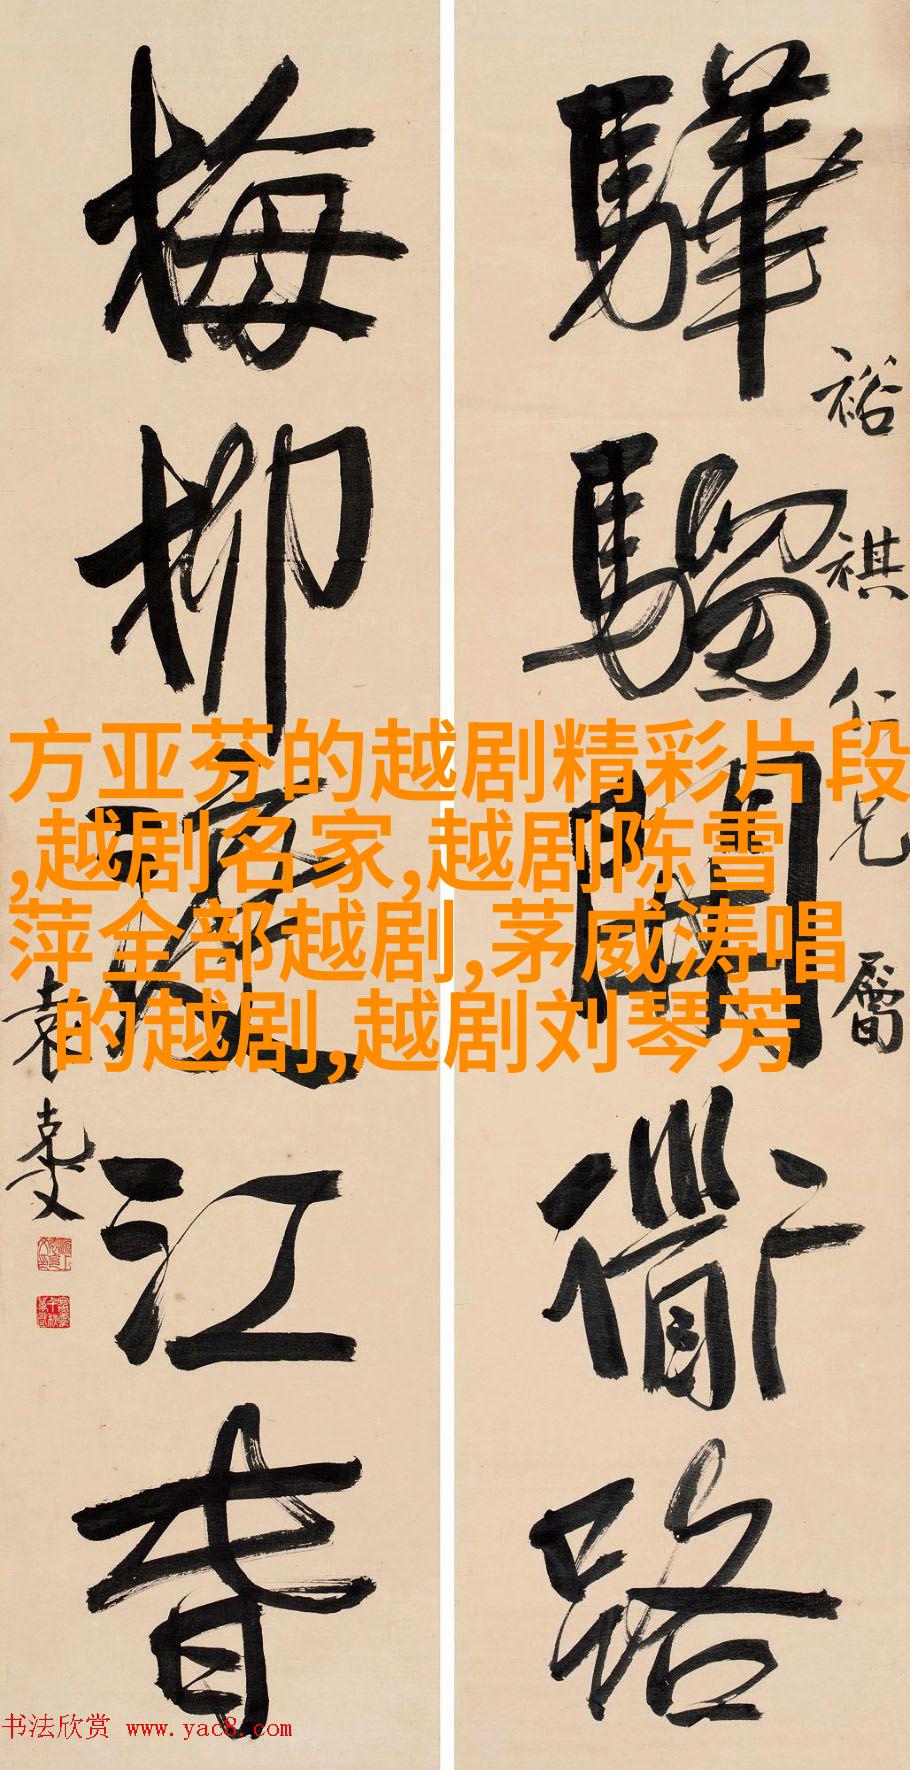 驊騮開衜路
裕祺仁兄屬
梅柳渡江春
袁克文
方亚芬的越剧精彩片段
,越剧名家,越剧陈雪
萍全部越剧,茅威涛唱
的越剧,越剧刘琴芳
书法欣赏 www.yac8.com